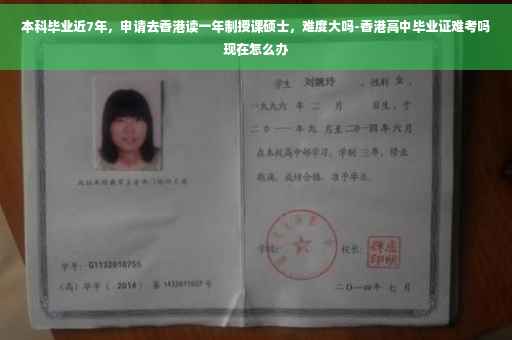 本科毕业近7年，申请去香港读一年制授课硕士，难度大吗-香港高中毕业证难考吗
现在怎么办
学生 刘婉玲 ，性别 女 ，
一九九六 年 二 月 日生，于
二〇一一年九 月至二〇一四年 六 月
在本校高中部学习，学制 三年，修业
期满，成绩合格，准予毕业。
学号：G1132010755
学校：
校长：
(高) 毕字 ( 2014 ) 第 1432011027 号
二〇一四年 七 月